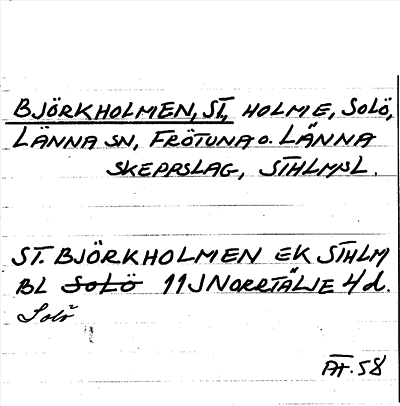 BJÖRKHOLMEN, ST, HOLME, SOLÖ,
LÄNNA SN, FRÖTUNA O. LÄNNA
SKEPPSLAG, STHLMSL.
ST. BJÖRKHOLMEN EK STHLM
BL SOLÖ 11J NORRTÄLJE 4d.
Solö
PÅT. 58